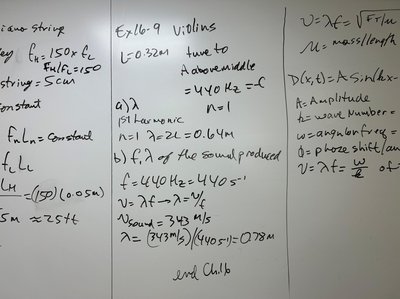 iano string
ey f_H = 150 x f_L
F_H/F_L = 150
string = 5cm
onstant
f_H L_H = constant
f_L L_L
L_H = (150)(0.05m)
5m ≈ 25ft
Ex16-9 Violins
L = 0.32m tune to
A above middle
= 440 Hz = f
a) λ n = 1
1st harmonic
n=1 λ = 2L = 0.64m
b) f, λ of the sound produced
f = 440Hz = 440 s⁻¹
v = λf → λ = v/f
v_sound = 343 m/s
λ = (343 m/s)/(440 s⁻¹) = 0.78m
end Ch.16
v = λf = √F_T/μ
μ = mass/length
D(x,t) = A Sin(kx-
A = Amplitude
k = wave Number =
ω = angular freq =
φ = phase shift/an
v = λf = ω/k of